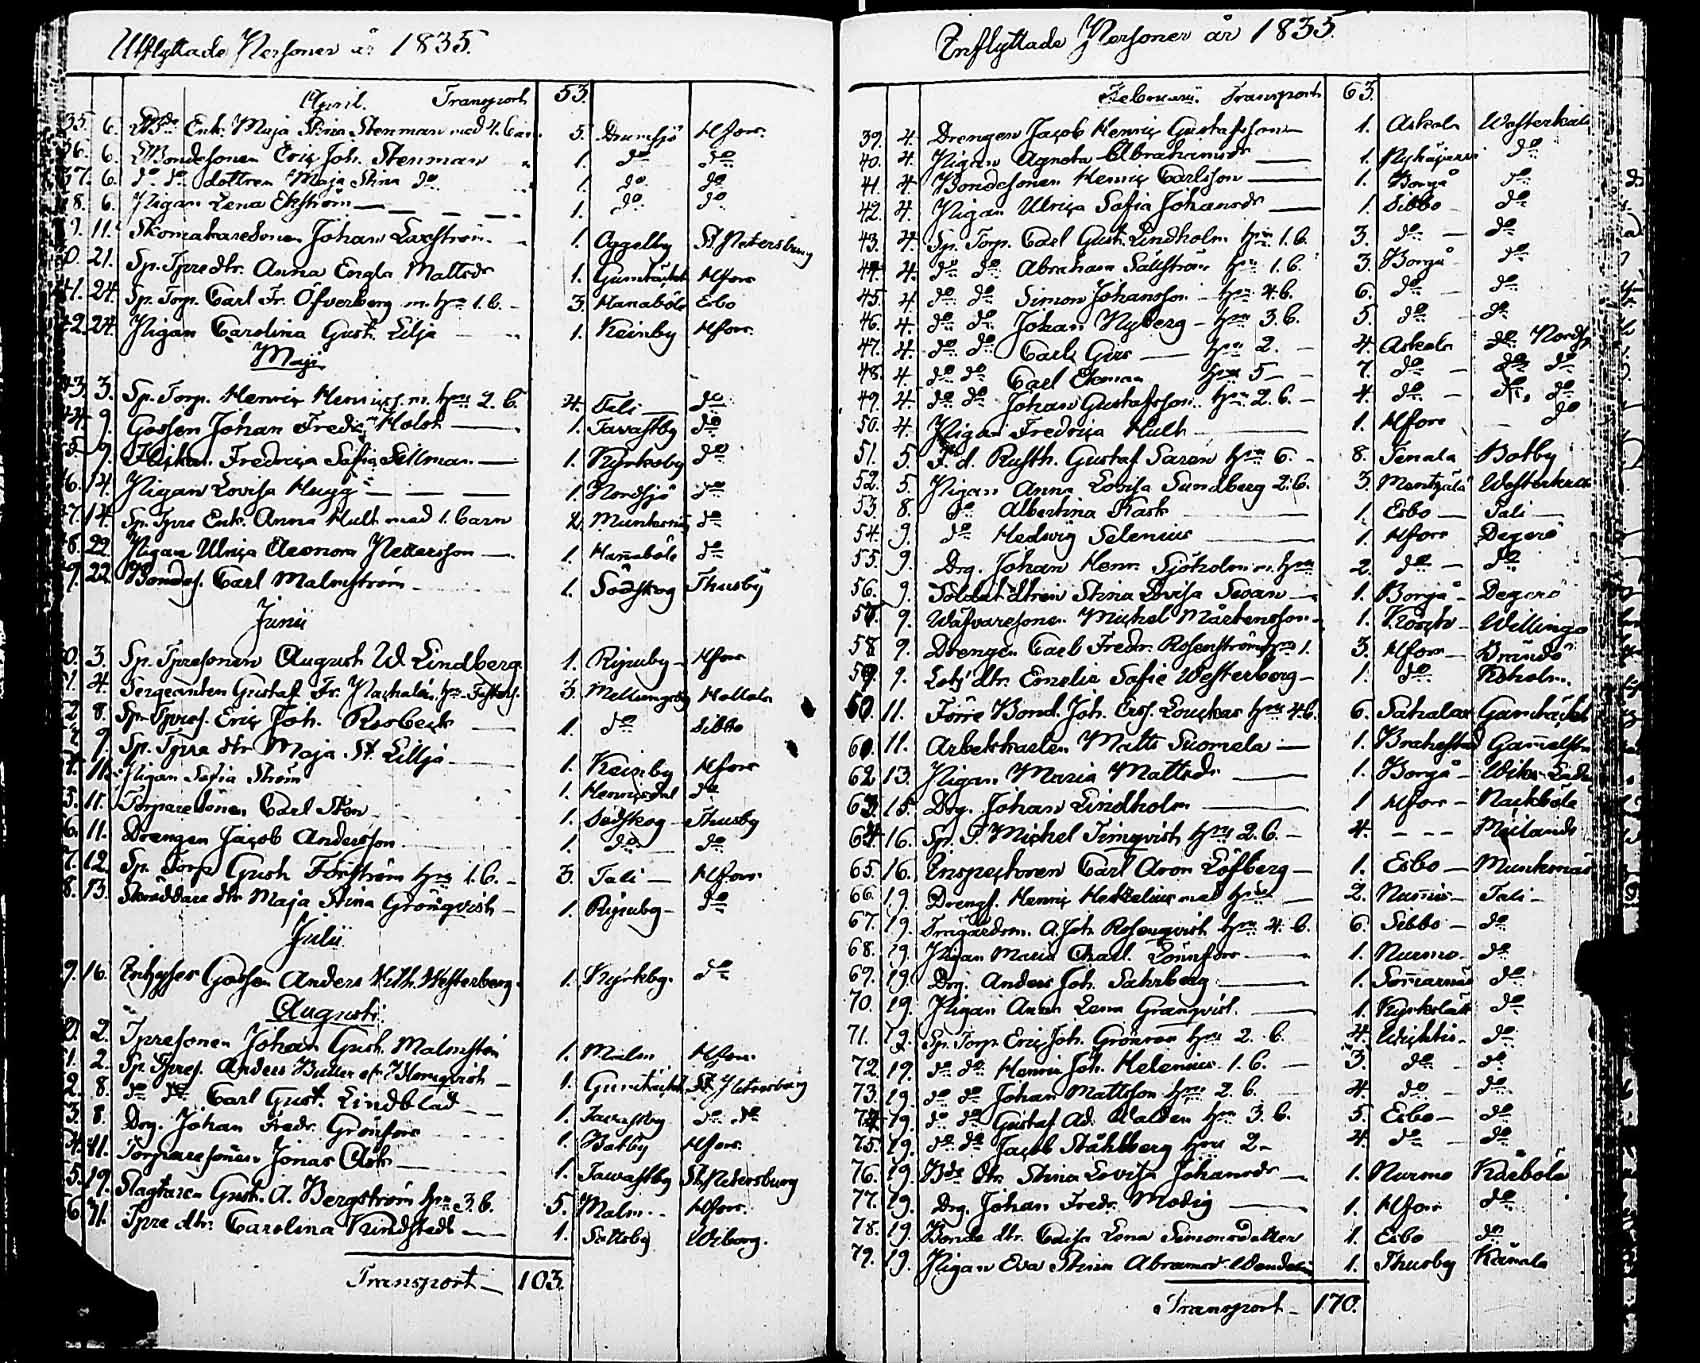 Utflyttade Personer år 1835.
April. Transport 53.
35. 6. Enk. Maja Stina Stenman med 4. barn 5. Drumsjö Hfors.
36. 6. Bondesonen Eric Joh. Stenman 1. do do
37. 6. do do dottren Maja Stina do 1. do do
8. 6. Pigan Lena Ekström 1. do do
9. 11. Skomakaresonen Johan Laxström 1. Åggelby St. Petersburg
0. 21. Sp. Tpredtr. Anna Engla Mattsdr 1. Gumtäckt Hfors
41. 24. Sp. Torp. Carl Fr. Öfverberg m. hru 1. b. 3. Hanaböle Esbo
42. 24. Pigan Carolina Gust. Lilja 1. Reinby Hfors.
Maji
43. 3. Sp. Torp. Henric Henricss. m. hru 2. b. 4. Tali do
44. 9. Gossen Johan Fredr. Holst 1. Tavastby do
5. 9. Flickan Fredrica Sofia Sillman 1. Kyrkoby do
6. 14. Pigan Lovisa Hugg 1. Nordsjö do
47. 14. Sp. Tpre Enk. Anna Hult med 1. barn 2. Munksnäs do
48. 22. Pigan Ulrica Eleonora Pettersson 1. Hanaböle do
9. 22. Bondes. Carl Malmström 1. Sodskog Thusby
Junii
0. 3. Sp. Tpresonen August W. Lindberg 1. Ripuby Hfors
1. 4. Sergeanten Gustaf Fr. hru 3. Mellungsby Hollola
2. 8. Sp. Tpres. Eric Joh. Rosbeck 1. do Sibbo
9. Sp. Tpre dtr Maja St. Lillja 1. Reinby Hfors
4. 11. Pigan Sofia Ström 1. Henricsdal do
5. 11. Torparesonen Carl Sten 1. Sodskog Thusby
6. 11. Drengen Jacob Andersson 1. do do
7. 12. Sp. Torp. Gust. Forström hru 1. b. 3. Tali Hfors.
8. 13. Skräddare dtr Maja Stina Grönqvist 1. Ripuby do
Julii
9. 16. Inhyses Gossen Anders Wilh. Westerberg 1. Kyrkby. do
Augusti
0. 2. Tpresonen Johan Gust. Malmsten 1. Malm Hfors
1. 2. Sp. Tpres. Anders 1. Gumtäckt St. Petersburg
2. 8. do do Carl Gust. Lindblad 1. Tavastby do do
3. 8. Drg. Johan Fredr. Grönfors 1. Botby Hfors.
4. 11. Torparesonen Jonas Ask 1. Tavastby St. Petersburg
5. 19. Slagtaren Gust. A. Bergström hru 3. b. 5. Malm Hfors.
6. 21. Tpre dtr. Carolina Rundstedt 1. Sottsby Wiborg.
Transport 103.
Inflyttade Personer år 1835.
Februari. Transport 63.
39. 4. Drengen Jacob Henric Gustafsson 1. Askola Westerkulla
40. 4. Pigan Agneta Abrahamsdr 1. do
41. 4. Bondesonen Henric Carlsson 1. Borgå do
42. 4. Pigan Ulrica Sofia Johansdr 1. Sibbo do
43. 4. Sp. Torp. Carl Gust. Lindholm hru 1. b. 3. do do
44. 4. do do Abraham Sällström hru 1. b. 3. Borgå do
45. 4. do do Simon Johansson hru 4. b. 6. do do
46. 4. do do Johan Nyberg hru 3. b. 5. do do
47. 4. do do Carl Girs hru 2. 4. Askola do Nords.
48. 4. do do Carl Ekman hru 5 7. do do do
49. 4. do do Johan Gustafsson hru 2. b. 4. do do do
50. 4. Pigan Fredrica Hult 1. Hfors do
51. 5. F. d. Rusth. Gustaf Saren hru 6. 8. Tenala Botby
52. 5. Pigan Anna Lovisa Sundberg 2. b. 3. Mentzälä Westerkulla
53. 8. do Albertina Rask 1. Esbo Tali
54. 9. do Hedvig Selenius 1. Hfors Degerö
55. 9. Drg. Johan Henr. Sjöholm m. hru 2. do do
56. 9. Soldat dtren Stina Lovisa Swan 1. Borgå Degerö
57. 9. Wäfvaresonen Michel Mårtensson 1. Willinge
58. 9. Drengen Carl Fredr. Rosenström hru 1. 3. Hfors Brändö
59. 9. Lots dtr. Emelie Sofie Westerberg 1. do Koholm.
60. 11. Förre Bond. Joh. Ers. Louckas hru 4. b. 6. Sahalax Gumtäckt
61. 11. Arbetskarlen Matts Suomela 1. Brahestad Gamelstn
62. 13. Pigan Maria Mattsdr 1. Borgå Wiks Lad
63. 15. Drg. Johan Lindholm 1. Hfors Nackböle
64. 16. Sp. T. Michel Timqvist hru 2. b. 4. Mejlands
65. 16. Inspectoren Carl Aron Löfberg 1. Esbo Munksnäs
66. 19. Drengs. Henric Hertzelius med hru 2. Numis Tali
67. 19. Trägårdsm. A. Joh. Rosenqvist hru 4. b. 6. Sibbo do
68. 19. Pigan Maria Charl. Lönnfors 1. Nurmo do
69. 19. Drg. Anders Joh. Sahrberg 1. Somarnäs do
70. 19. Pigan Anna Lena Granqvist. 1. Kyrkslätt do
71. 19. Sp. Torp. Eric Joh. Grönroos hru 2. b. 4. Wichtis do
72. 19. do do Henric Joh. Helenius 1. b. 3. do do
73. 19. do do Johan Mattsson hru 2. b. 4. do do
74. 19. do do Gustaf Ad. Walden hru 3. b. 5. Esbo do
75. 19. do do Jacob Ståhlberg hru 2. 4. do do
76. 19. Bde dtr. Stina Lovisa Johansdr 1. Nurmo Kårböle
77. 19. Drg. Johan Fredr. Modig 1. Hfors do
78. 19. Bonde dtr. Caisa Lena Simonsdotter 1. Esbo do
79. 19. Pigan Eva Stina Abramsd. Wendelin 1. Thusby Kånala
Transport 170.